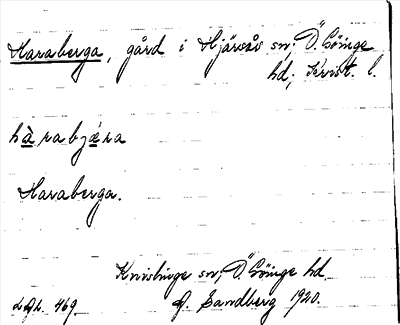 Haraberga, gård i Hjärsås sn; Ö. Göinge
hd; Krist. l.
hàrabjæra
Haraberga.
Knislinge sn; Ö. Göinge hd.
469. Sandberg 1920.